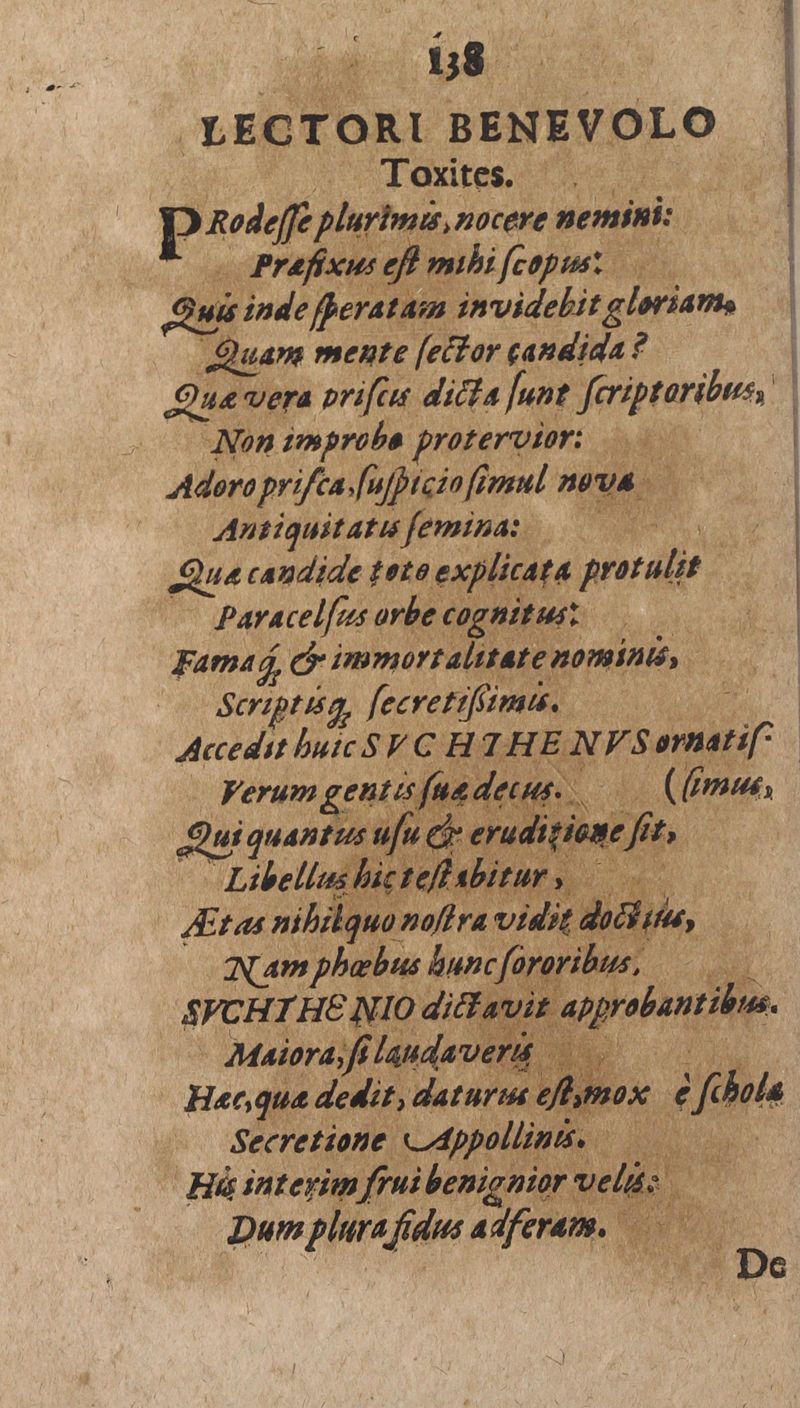 138
LECTORI BENEVOLO
Toxites.
PRodeſſe plurimis, nocere nemini:
Præfixus eſt mihi ſcopus:
Quis inde ſperatam invidebit gloriam,
Quam mente ſector candida?
Quæ vera priſcis dicta ſunt ſcriptoribus,
Non improbo protervior:
Adoro priſca, ſuſpicio ſimul nova
Antiquitatis ſemina:
Quæ candide toto explicata protulit
Paracelſus orbe cognitus:
Famaq́, & immortalitate nominis,
Scriptisq, ſecretiſsimis.
Accedit huic SVCHTHENVS ornatiſ-
Verum gentis ſuæ decus. (ſimus,
Qui quantus uſu & eruditione ſit,
Libellus hic teſtabitur,
Ætas nihil quo noſtra vidit doctius,
Nam phœbus hunc ſororibus,
SVCHTHENIO dictavit approbantibus.
Maiora, ſi laudaveris
Hæc, quæ dedit, daturus eſt, mox è ſchola
Secretione Appollinis.
His interim frui benignior velis:
Dum plura fidus adferam.
De